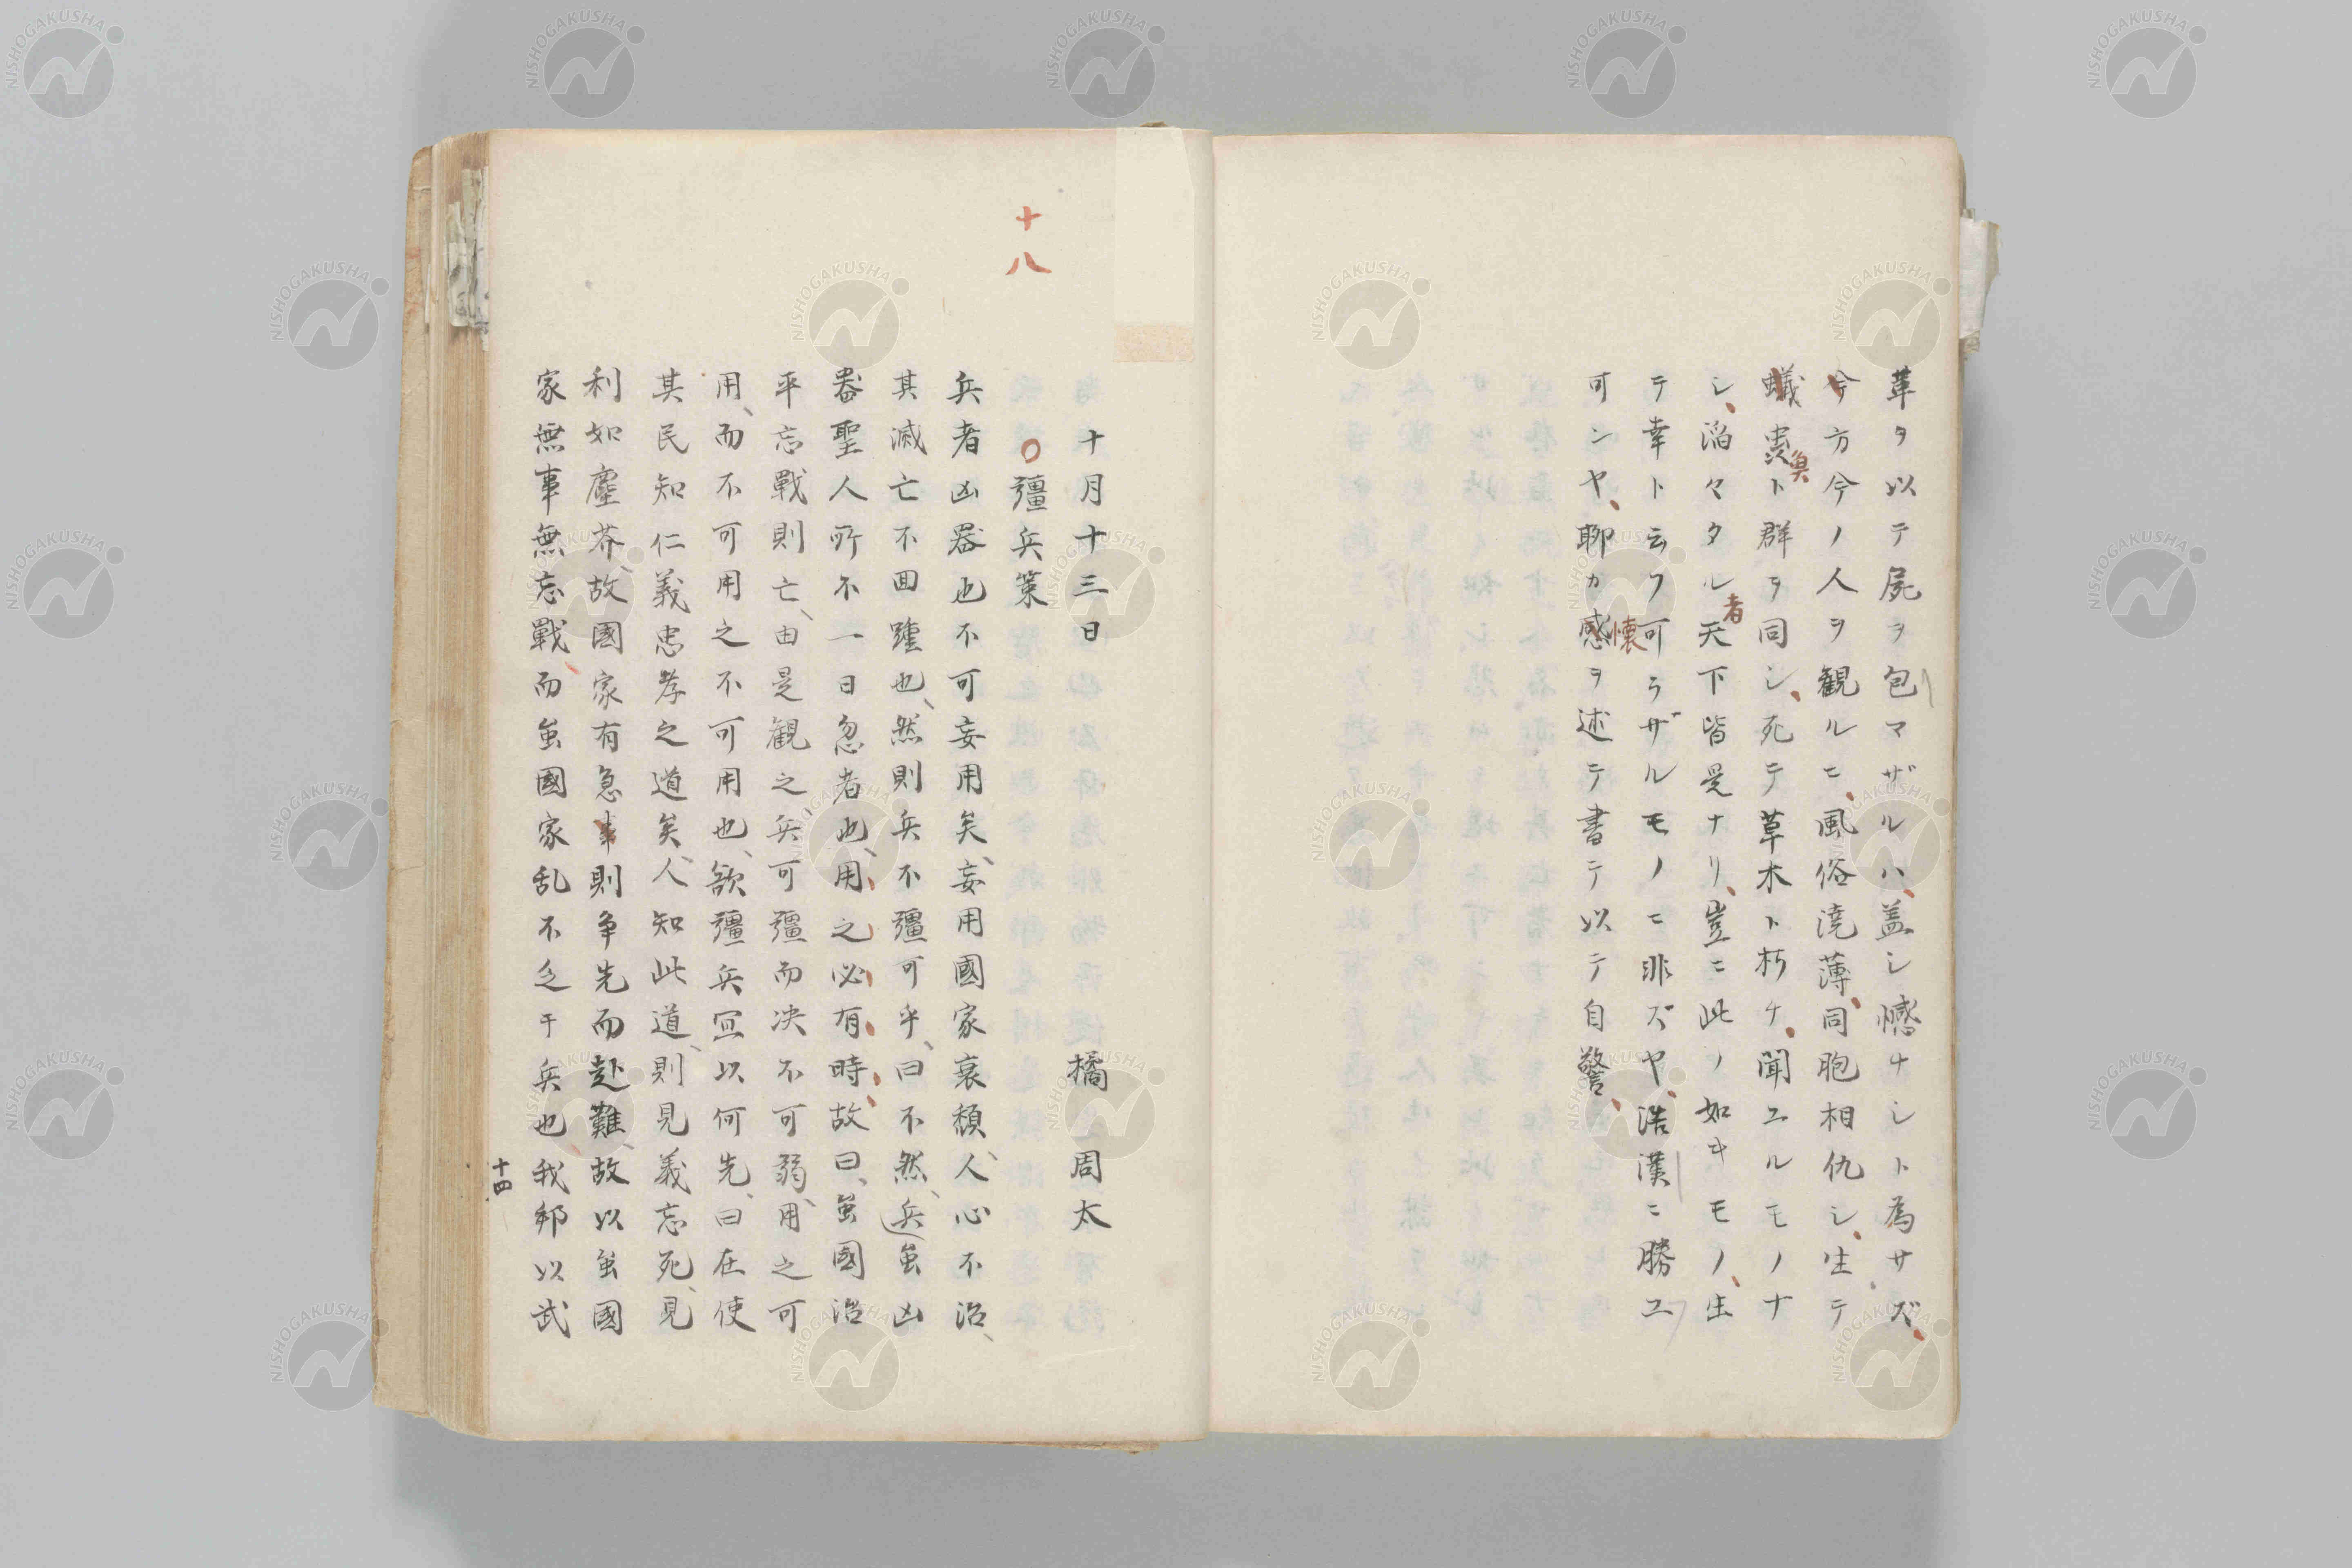 革ヲ以テ屍ヲ包マザルハ、盖シ憾ナシト為サズ、
今方今ノ人ヲ観ルニ、風俗澆薄、同胞相仇シ、生テ
蟻蛍臭ト群ヲ同シ、死テ草木ト朽チ、聞エルモノナ
シ、滔々タル者天下皆是ナリ、豈ニ此ノ如キモノ、生
テ幸ト云フ可ラザルモノニ非ズヤ、浩漢ニ勝エ
可ンヤ、聊カ感懐ヲ述テ書テ以テ自警、
十月十三日 橘周太
十八
〇彊兵策
兵者凶器也不可妄用矣、妄用國家衰頽、人心不治、
其滅亡不囬踵也、然則兵不彊可乎、曰不然、兵虽凶
器聖人所不一日忽者也、用之必有時、故曰、虽國治
平忘戰則亡、由是観之兵可彊而决不可弱、用之可
用、而不可用之不可用也、欲彊兵冝以何先、曰在使
其民知仁義忠孝之道矣、人知此道、則見義忘死、見
利如塵芥、故國家有急事則争先而赴難、故以虽國
家無事無忘戰、而虽國家乱不乏于兵也、我邦以武
十四
NISHOGAKUSHA